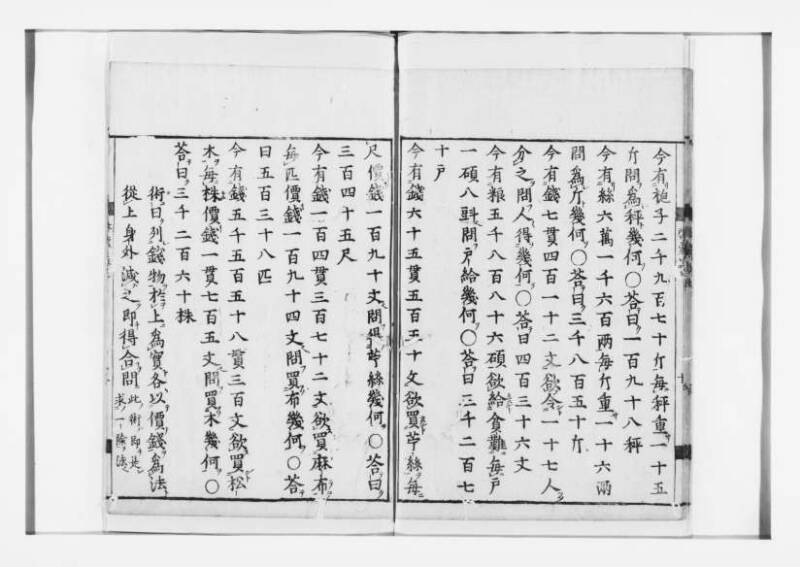 今有梔子二千九百七十斤每秤重一十五
斤問為秤幾何〇荅曰一百九十八秤
今有絲六萬一千六百兩每斤重一十六兩
問為斤幾何〇荅曰三千八百五十斤
今有錢七貫四百一十二文欲令一十七人
分之問人得幾何〇荅曰四百三十六文
今有粮五千八百八十六碩欲給貧難每戶
一碩八㪷問戶給幾何〇荅曰三千二百七
十戶
今有錢六十五貫五百五十文欲買苧絲每
尺價錢一百九十文問得苧絲幾何〇荅曰
三百四十五尺
今有錢一百四貫三百七十二文欲買麻布
每匹價錢一百九十四文問買布幾何〇荅
曰五百三十八匹
今有錢五千五百五十八貫三百文欲買松
木每株價錢一貫七百五文問買木幾何〇
荅曰三千二百六十株
術曰列錢物於上為實各以價錢為法
從上身外減之即得合問此術即是
求一除法